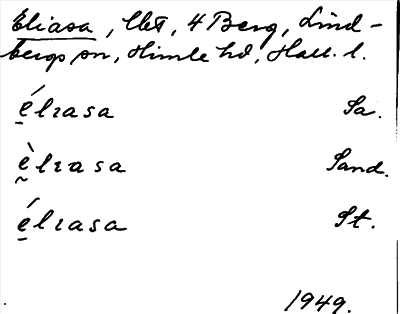 Eliasa, lht, 4 Berg, Lind-
bergs sn, Himle hd, Hall. l.
é̠lɩasa Sa.
ḛ̀lɩasa Sand.
é̠lɩasa St.
1949.